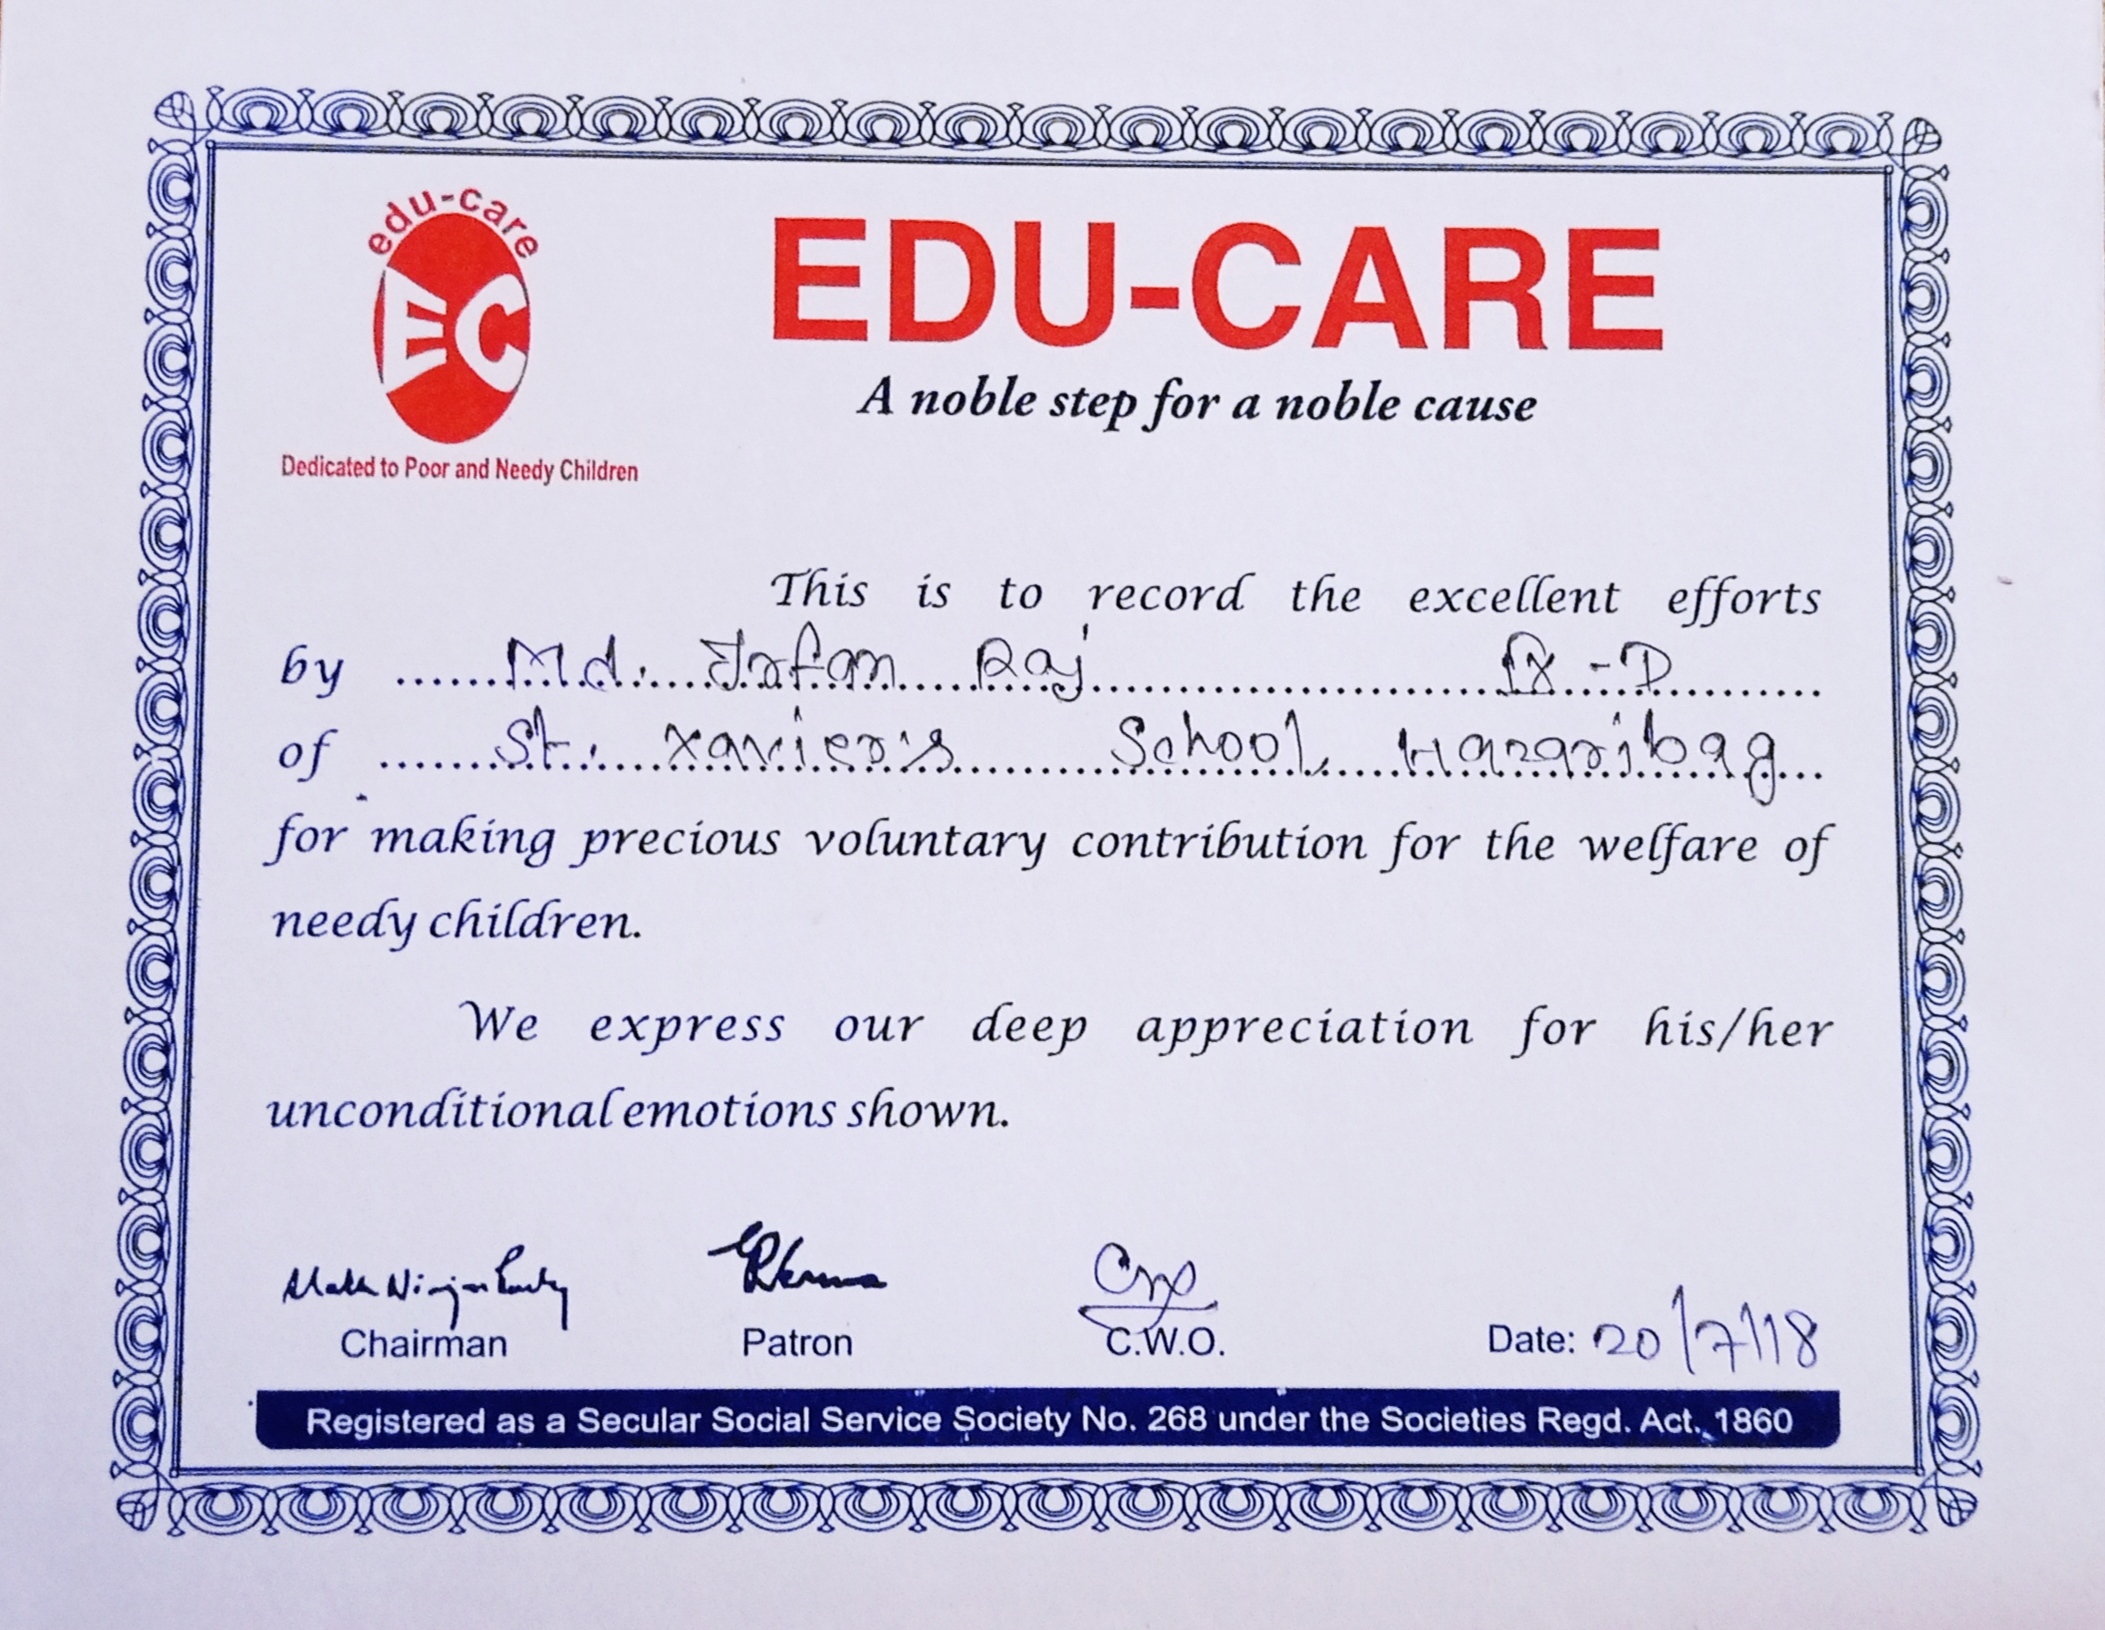 edu-care
EC
Dedicated to Poor and Needy Children
EDU-CARE
A noble step for a noble cause
This is to record the excellent efforts
by ......Md. Irfan Raj.................IX-D..........
of .......St. Xavier's School Hazaribag...
for making precious voluntary contribution for the welfare of
needy children.
We express our deep appreciation for his/her
unconditional emotions shown.
Chairman
Patron
C.W.O.
Date: 20/7/18
Registered as a Secular Social Service Society No. 268 under the Societies Regd. Act. 1860